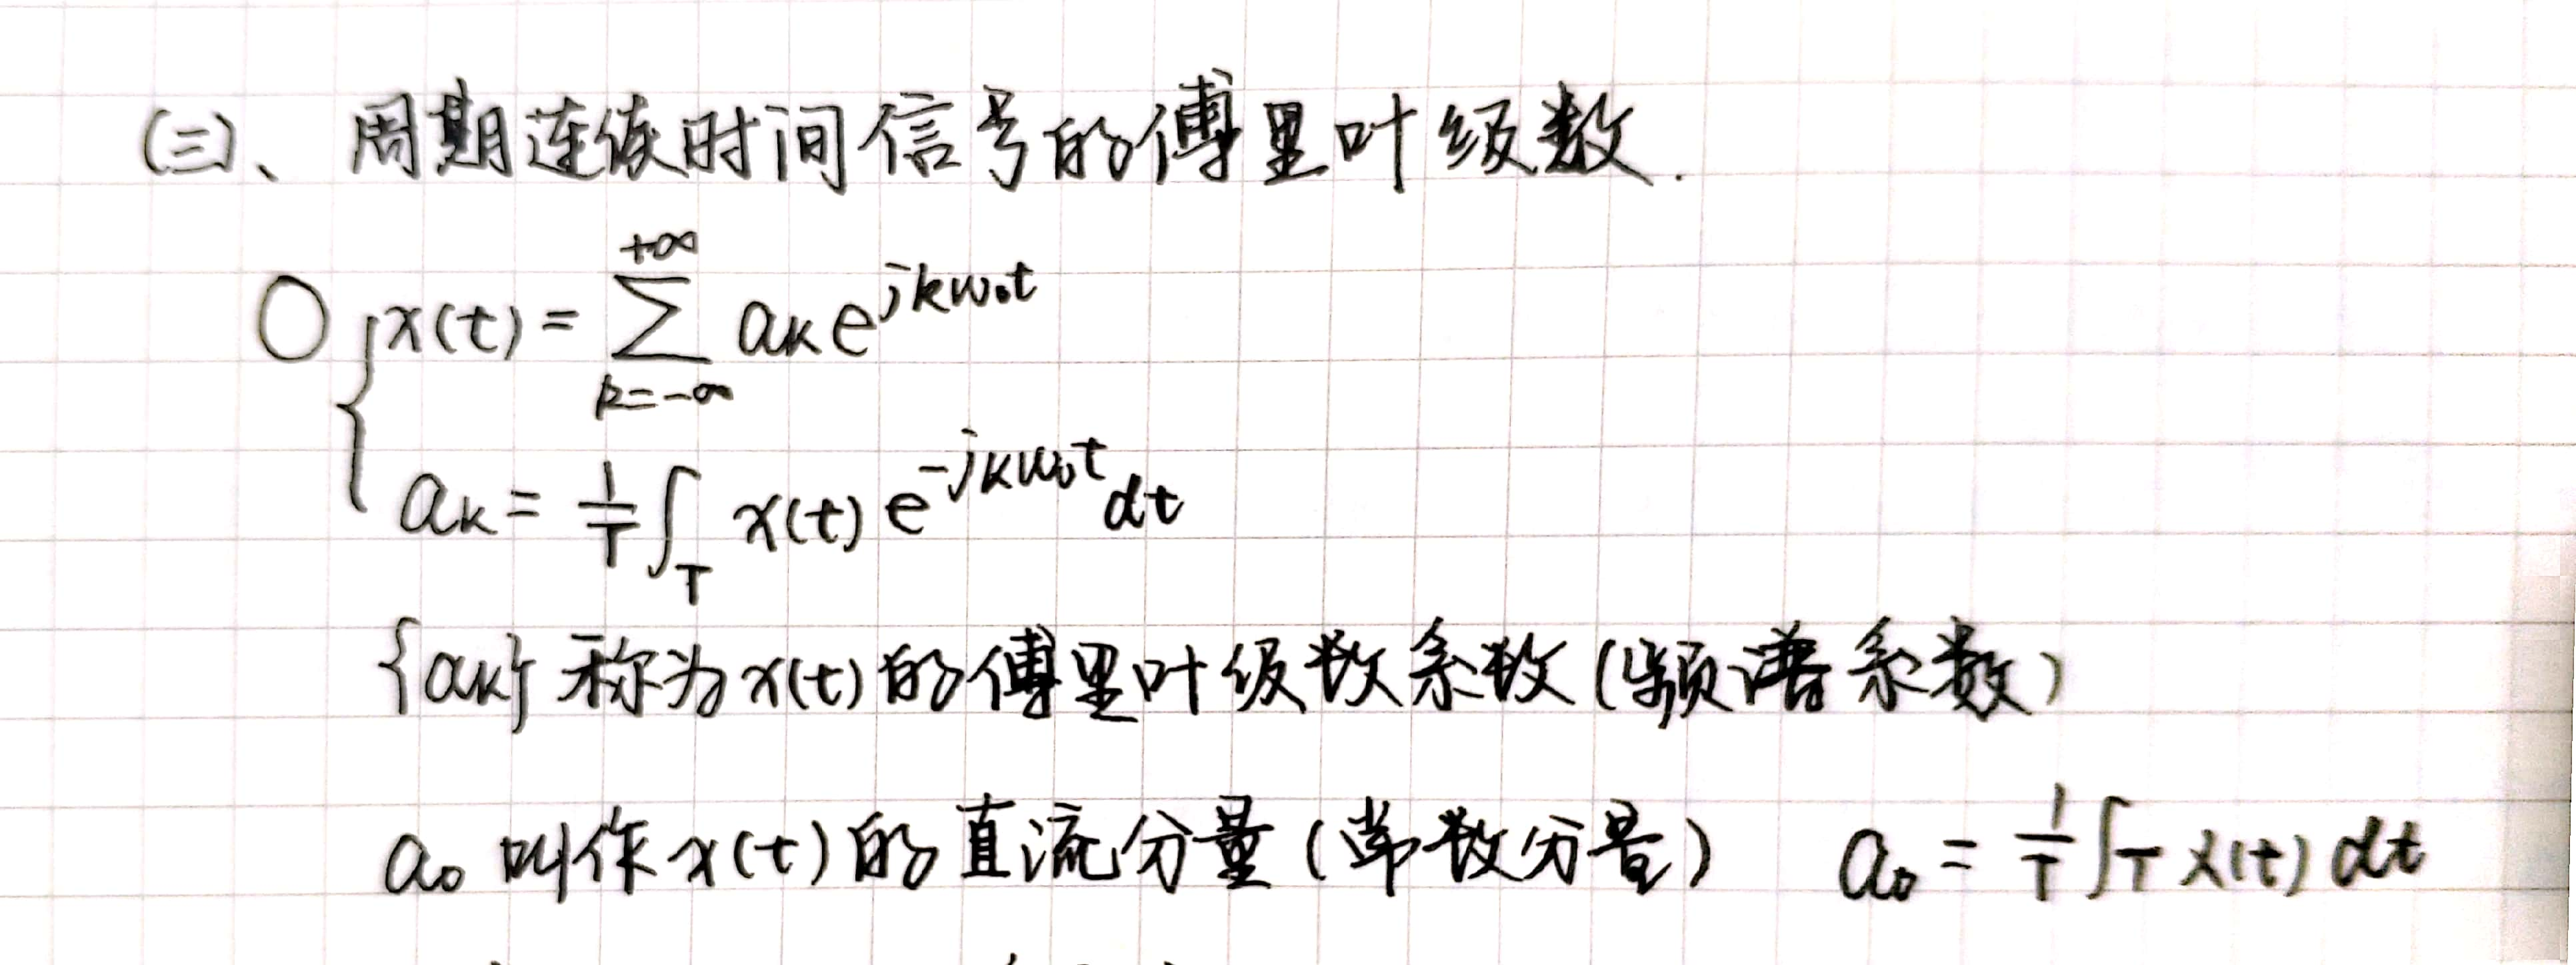 (三)、周期连续时间信号的傅里叶级数.
○ { x(t) = \sum_{k=-∞}^{+∞} a_k e^{jkω₀t}
a_k = \frac{1}{T} ∫_T x(t) e^{-jkω₀t} dt
{a_k} 称为 x(t) 的傅里叶级数系数 (频谱系数)
a₀ 叫作 x(t) 的直流分量 (常数分量) a₀ = \frac{1}{T} ∫_T x(t) dt